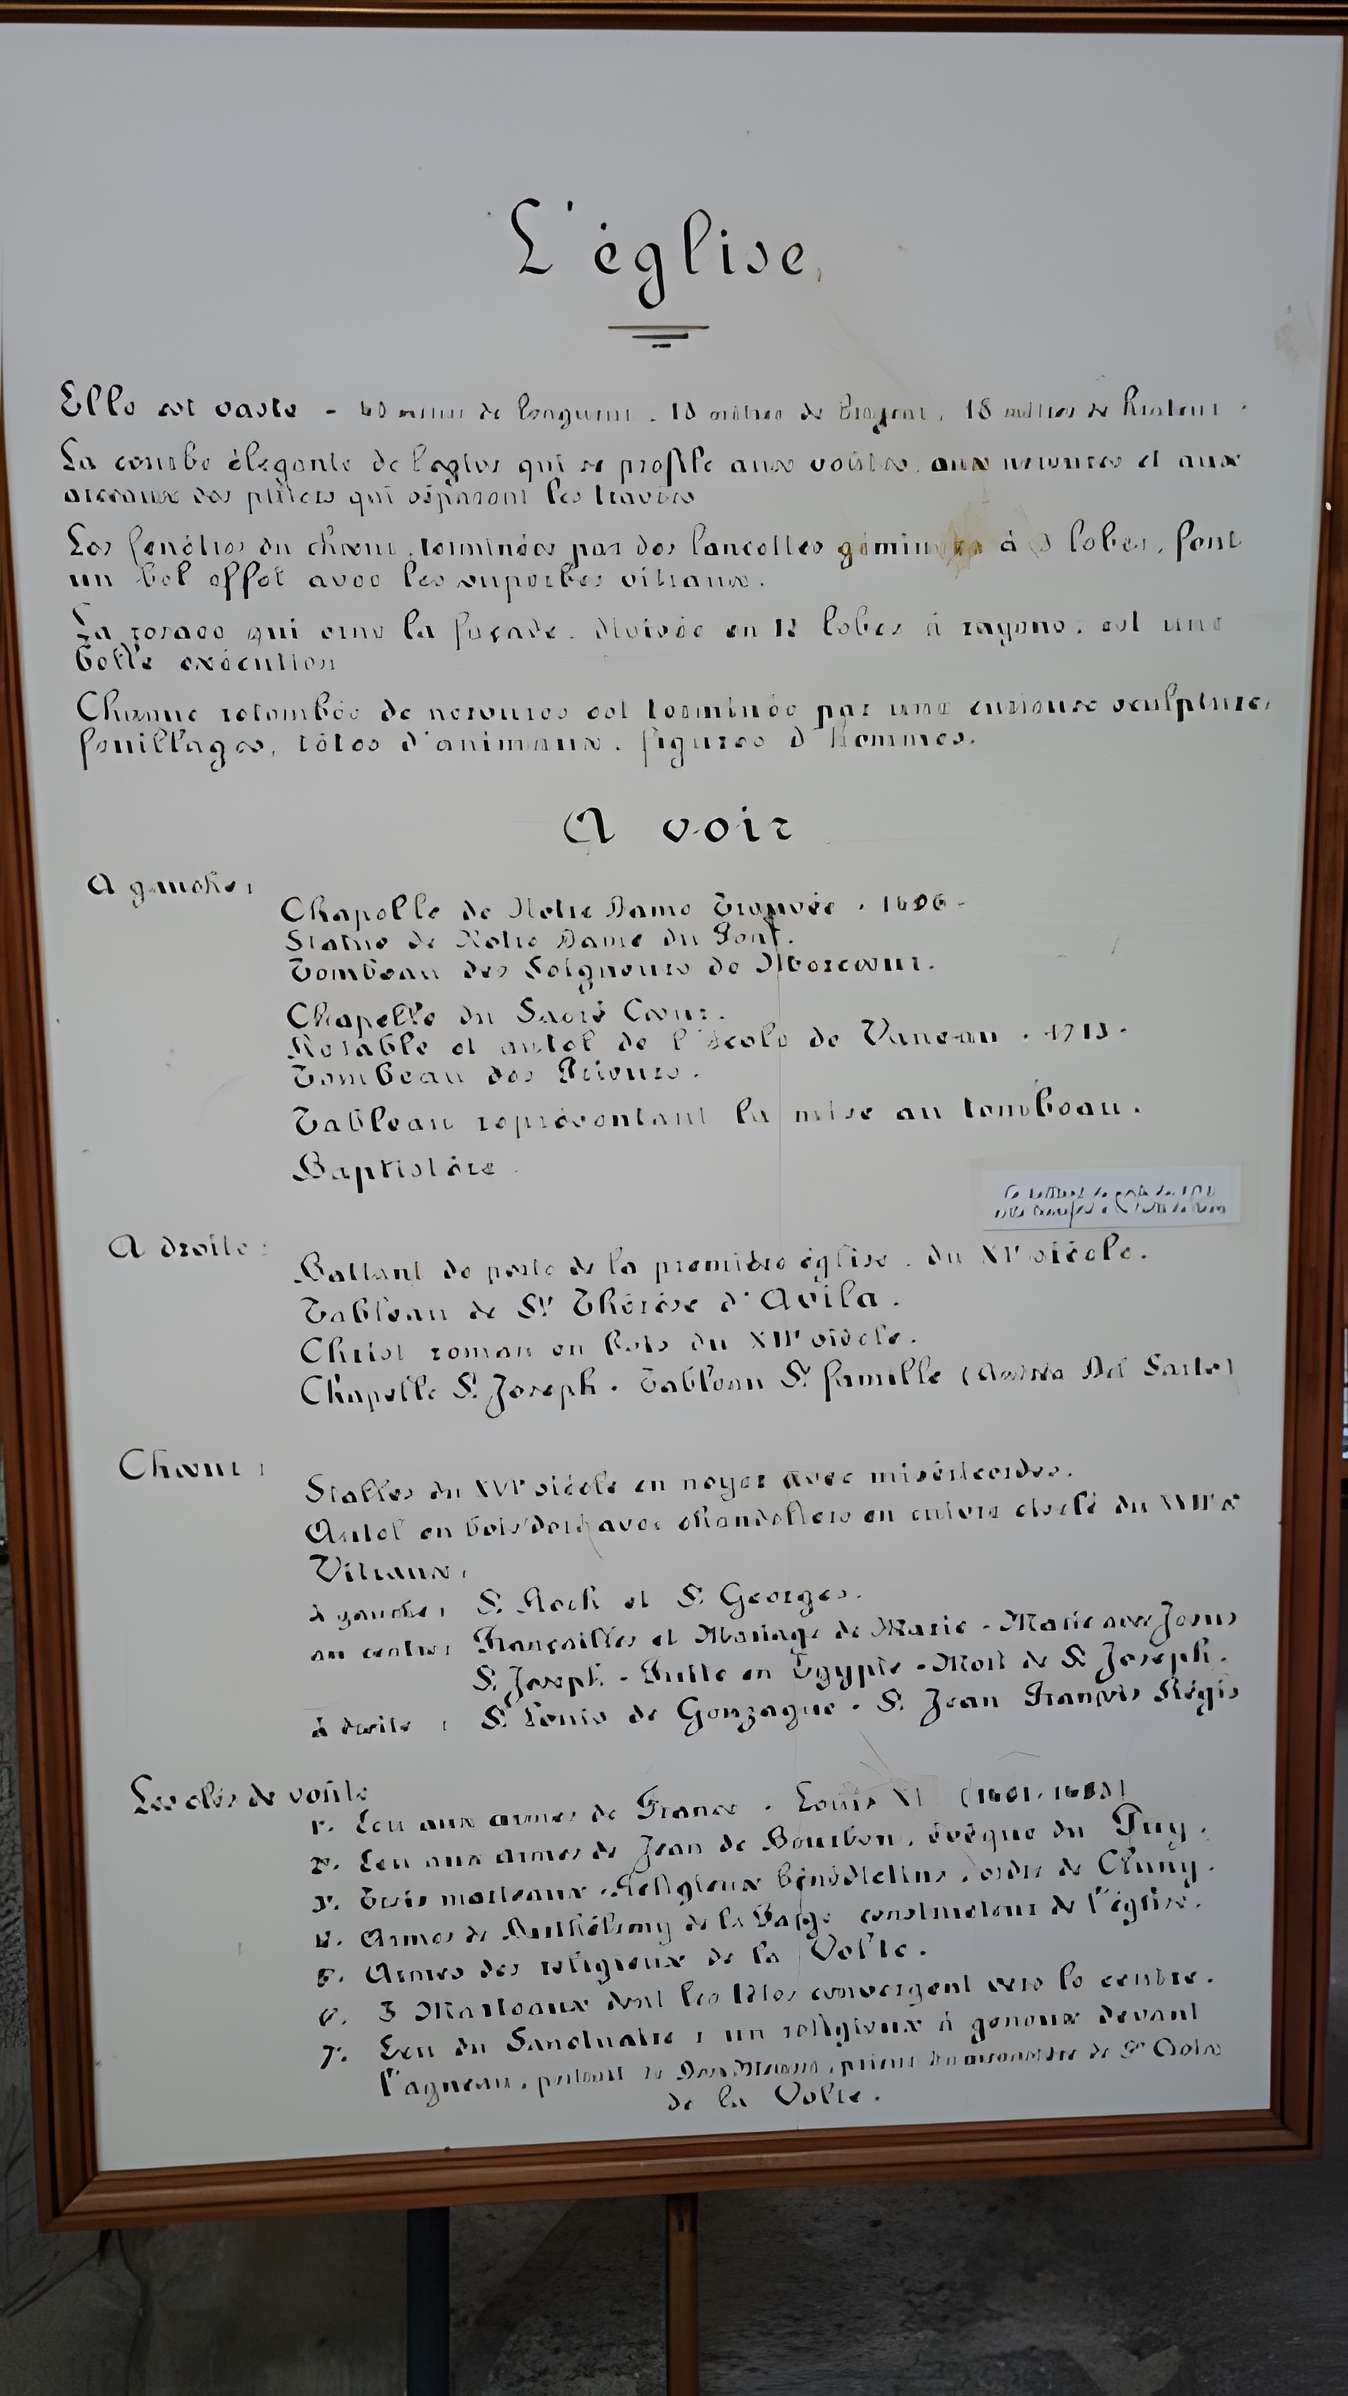 L'église
Elle est vaste - mètres de longueur. mètres de largeur. 18 mètres de hauteur.
La courbe élégante de l'ogive qui se profile aux voûtes, aux nervures et aux
arceaux des piliers qui séparent les travées
Les fenêtres du chœur, terminées par des lancettes géminées à 3 lobes, font
un bel effet avec les superbes vitraux.
La rosace qui orne la façade, divisée en 12 lobes à rayons, est une
belle exécution
Chaque retombée de nervures est terminée par une curieuse sculpture,
feuillages, têtes d'animaux, figures d'hommes.
A voir
A gauche :
Chapelle de Notre Dame Trouvée.
Statue de Notre Dame du Pont.
Tombeau des Seigneurs de Mercœur.
Chapelle du Sacré Cœur.
Retable et autel de l'école de Vaneau. 1713.
Tombeau des Prieurs.
Tableau représentant la mise au tombeau.
Baptistère.
Ce battant de porte
A droite :
Battant de porte de la première église, du XIe siècle.
Tableau de Ste Thérèse d'Avila.
Christ roman en bois du XIIe siècle.
Chapelle St Joseph. Tableau Ste famille (Andréa Del Sarte)
Chœur :
Stalles du XVIe siècle en noyer avec miséricordes.
Autel en bois doré avec chandeliers en cuivre ciselé du XVIIe s
Vitraux :
à gauche : St Roch et St Georges.
au centre : Françailles et Mariage de Marie - Marie avec Jésus
St Joseph - Fuite en Egypte - Mort de St Joseph.
à droite : St Louis de Gonzague. St Jean François Régis
Les clés de voûte
1°. Ecu aux armes de France. Louis XI (1461.1483)
2°. Ecu aux armes de Jean de Bourbon, évêque du Puy.
3°. Trois marteaux. Religieux bénédictins, ordre de Cluny.
4°. Armes de Barthélemy de la Farge constructeur de l'église.
5°. Armes des religieux de la Volte.
6°. 3 Marteaux dont les têtes convergent vers le centre.
7°. Ecu du Sanctuaire : un religieux à genoux devant
l'agneau, portant prieur du monastère de Ste Croix
de la Volte.